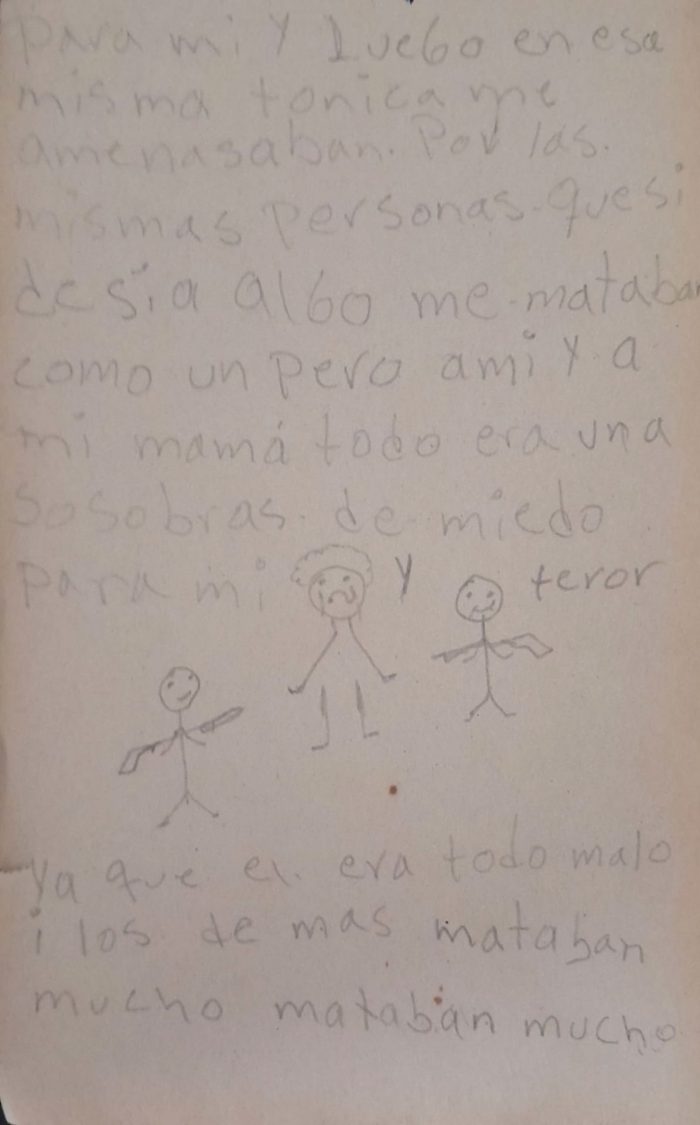 para mi y luego en esa
misma tonica me
amenasaban. Por las.
mismas personas. que si
desia algo me. mataban
como un pero ami y a
mi mamá todo era una
sosobras. de miedo
para mi y teror
ya que el. era todo malo
i los de mas mataban
mucho mataban mucho